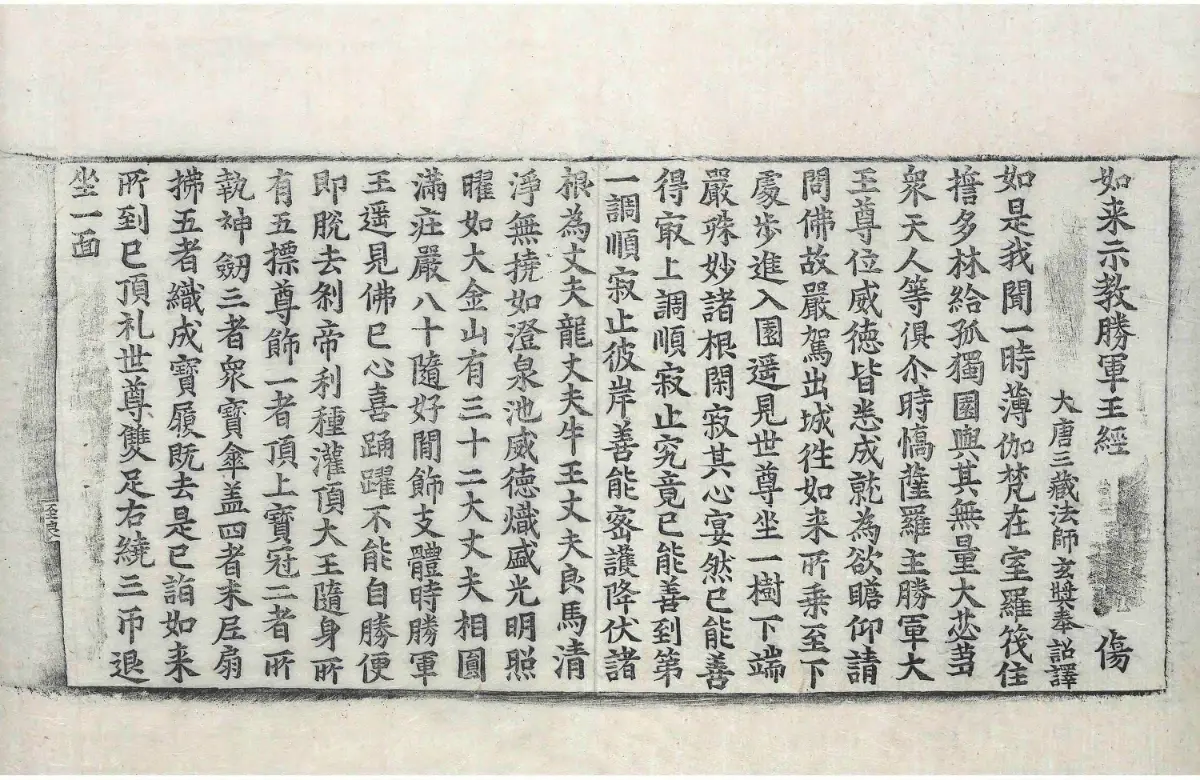 如来示教勝軍王經 傷
大唐三藏法師玄奘奉 詔譯
如是我聞一時薄伽梵在室羅筏住
擔多林給孤獨園與其無量大苾芻
衆天人等俱尒時憍薩羅主勝軍大
王尊位威德皆悉成就為欲瞻仰請
問佛故嚴駕出城往如来所乗至下
處步進入園遥見世尊坐一樹下端
嚴殊妙諸根閑寂其心宴然已能善
得㝡上調順寂止究竟已能善到第
一調順寂止彼岸善能密護降伏諸
根為丈夫龍丈夫牛王丈夫良馬清
淨無撓如澄泉池威德熾盛光明照
曜如大金山有三十二大丈夫相圓
滿莊嚴八十隨好間飾支體時勝軍
王遥見佛已心喜踊躍不能自勝便
即脫去剎帝利種灌頂大王隨身所
有五摽尊飾一者頂上寶冠二者所
執神劒三者衆寶傘盖四者末尼扇
拂五者織成寶履既去是已詣如来
所到已頂礼世尊雙足右繞三帀退
坐一面